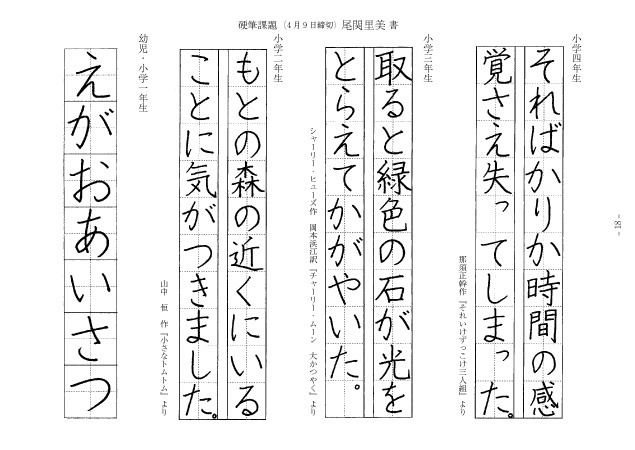 硬筆課題（4月9日締切）尾関里美 書
小学四年生
そればかりか時間の感
覚さえ失ってしまった。
那須正幹作『それいけずっこけ三人組』より
小学三年生
取ると緑色の石が光を
とらえてかがやいた。
シャーリー・ヒューズ作 岡本浜江訳『チャーリー・ムーン 大かつやく』より
小学二年生
もとの森の近くにいる
ことに気がつきました。
山中 恒 作『小さなトムトム』より
幼児・小学一年生
えがおあいさつ
- 18 -